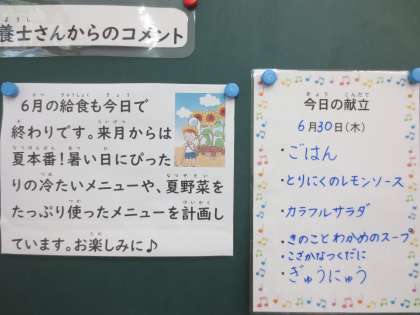 養士さんからのコメント
6月の給食も今日で
終わりです。来月からは
夏本番！暑い日にぴった
りの冷たいメニューや、夏野菜を
たっぷり使ったメニューを計画し
ています。お楽しみに♪
今日の献立
6月30日(木)
・ごはん
・とりにくのレモンソース
・カラフルサラダ
・きのことわかめのスープ
・こざかなつくだに
・ぎゅうにゅう